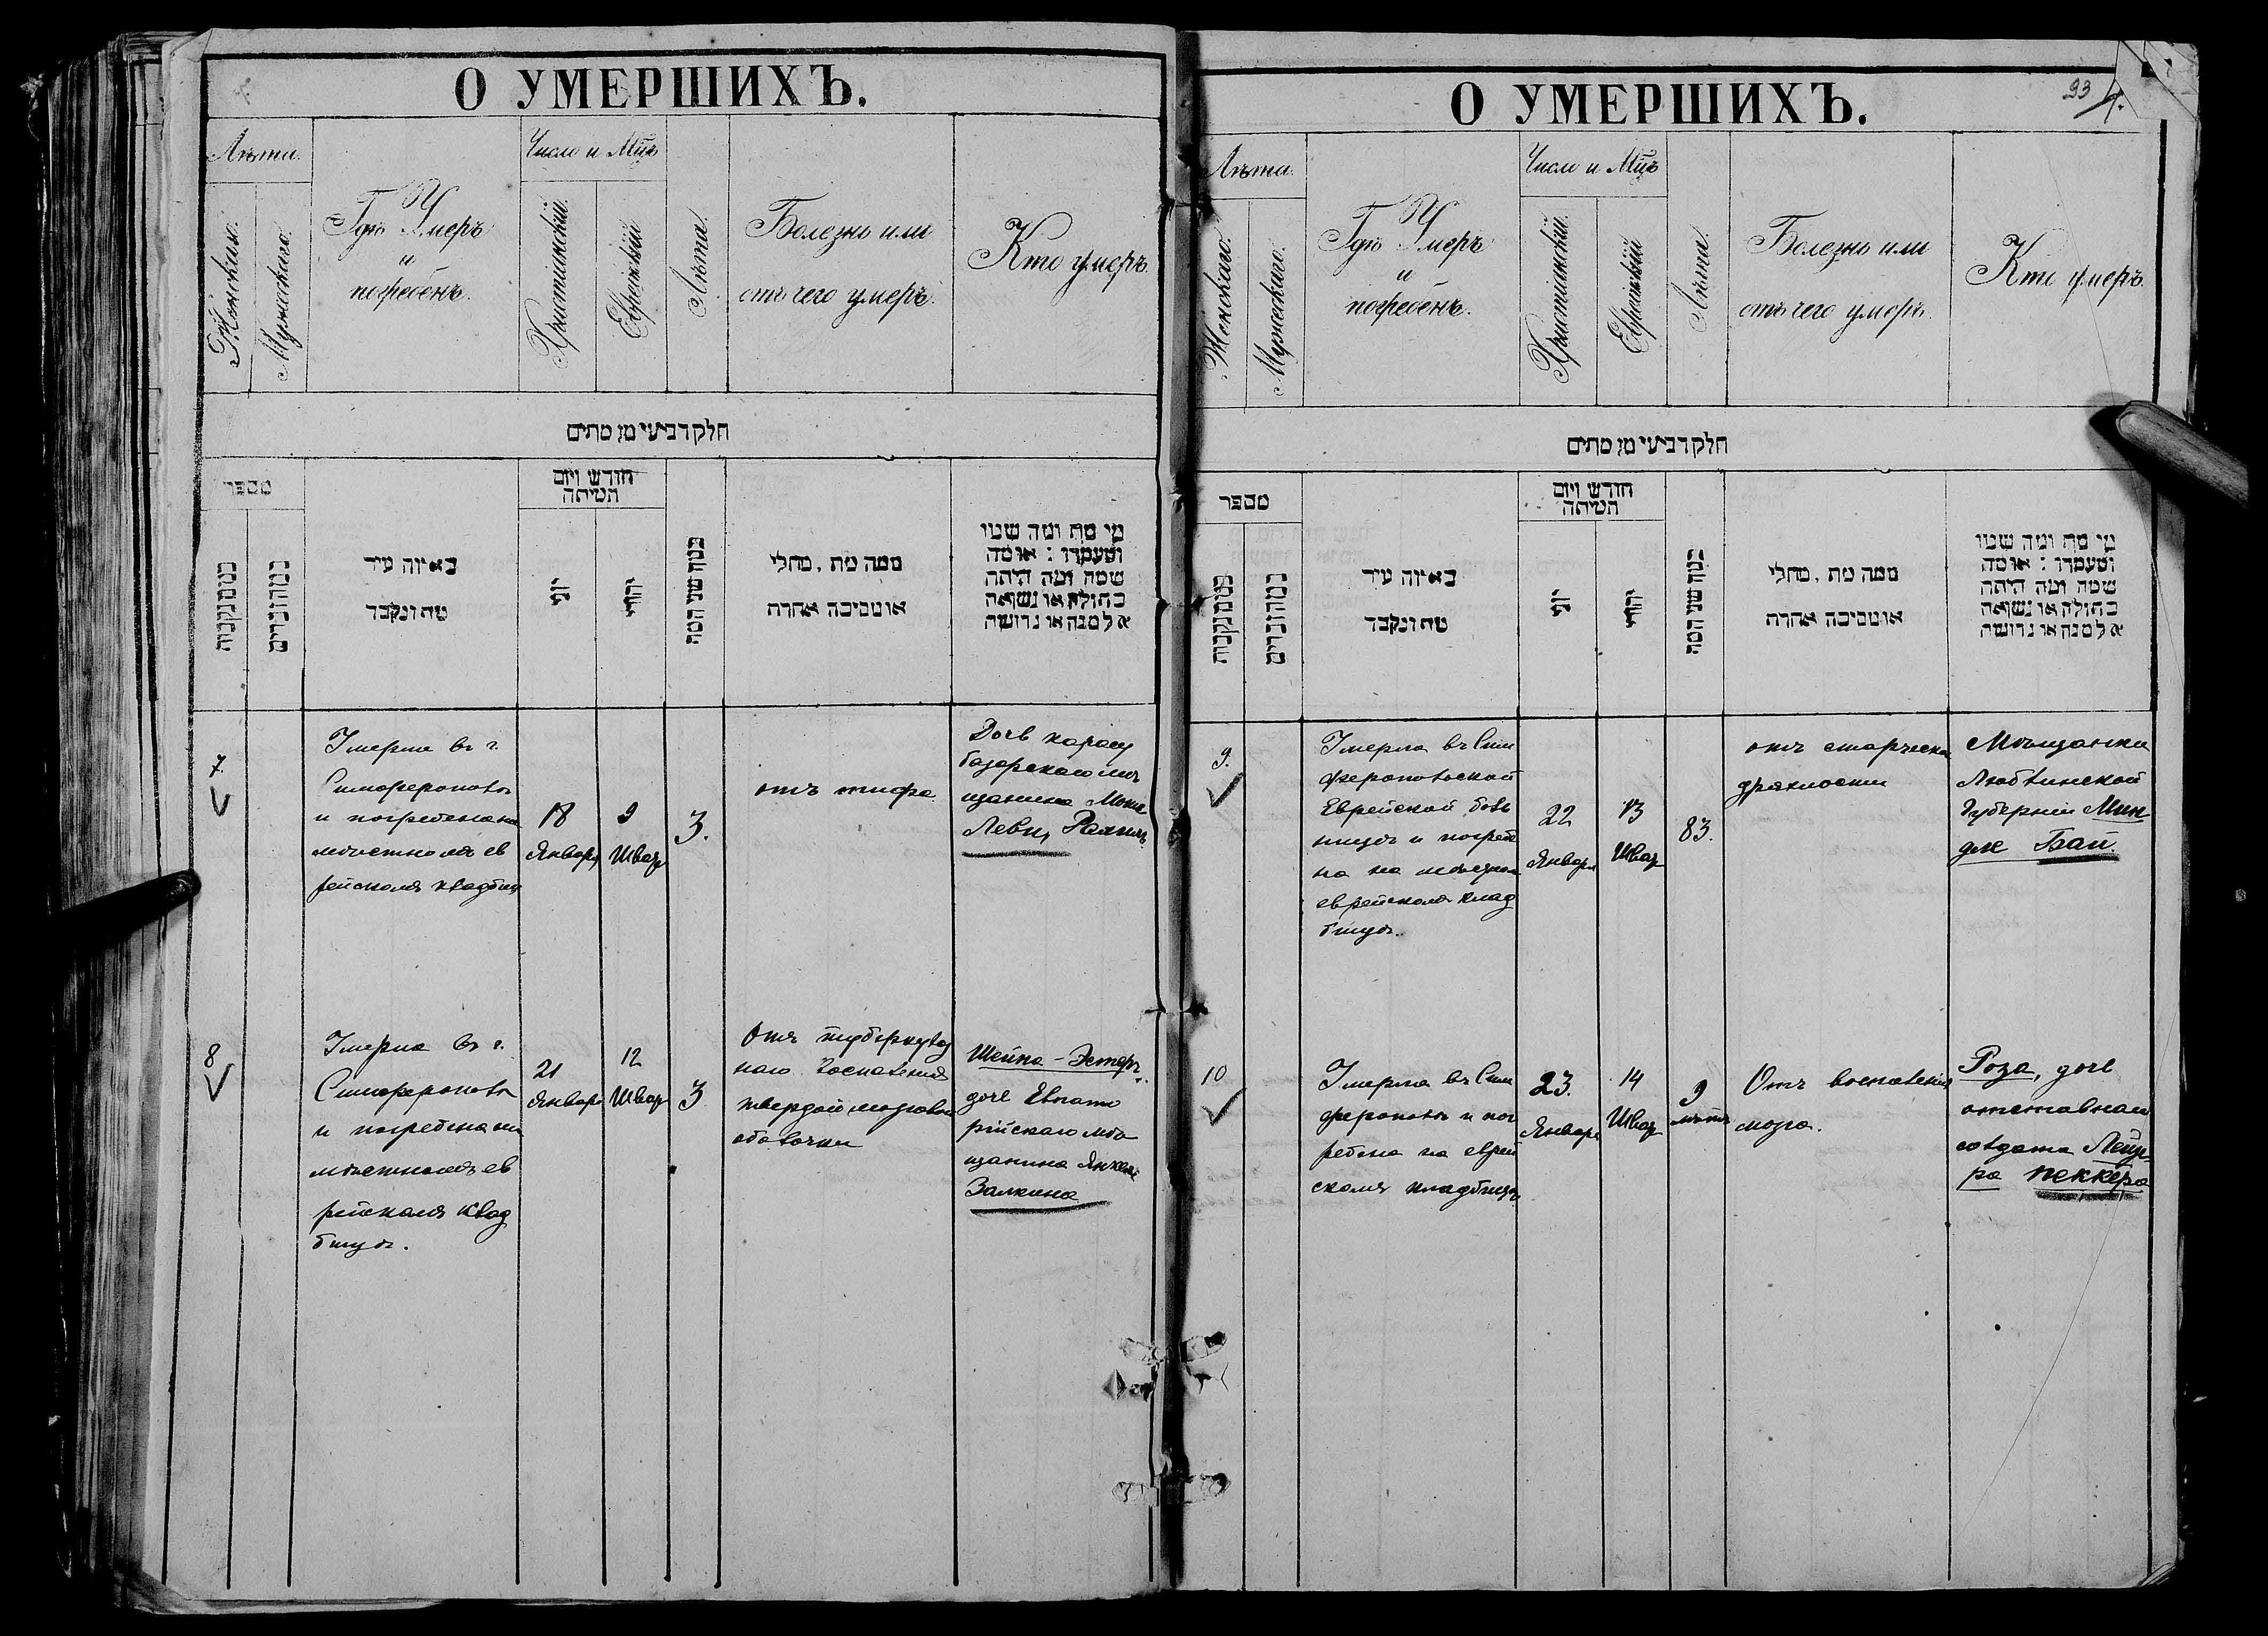 О УМЕРШИХЪ.
Лѣта.
Женскаго.
Мужескаго.
Гдѣ Умеръ
и
погребенъ.
Число и Мцъ
Христіянскій.
Еврейскій
Лѣта.
Болезнь или
отъ чего умеръ.
Кто умеръ.
חלק רביעי מן מתים
מספר
באיזה עיר
מת ונקבר
חודש ויום
המיתה
יוני
יהודי
ממה מת, מחלי
או מסיבה אחרת
מי מת ומה שמו
ומעמדו : או מה
שמה ומה היתה
בתולה או נשואה
אלמנה או גרושה
7.
Умерла въ г.
Симферополѣ
и погребена на
мѣстномъ ев
рейскомъ кладбищ
18
Января
9
Шват
3.
отъ тифа.
Дочь карасу
базарскаго мѣ
щанина
Леви,
8
Умерла въ г.
Симферополѣ
и погребена на
мѣстномъ ев
рейскомъ клад
бищѣ.
21
Января
12
Шват
3
Отъ туберкулез
наго Воспаленія
твердой мозговой
оболочки
Шейна-Эстеръ,
дочь Евпато
рійскаго мѣ
щанина Янкеля
Залкина
О УМЕРШИХЪ.
93
Лѣта.
Женскаго.
Мужескаго.
Гдѣ Умеръ
и
погребенъ.
Число и Мцъ
Христіянскій.
Еврейскій
Лѣта.
Болезнь или
отъ чего умеръ.
Кто умеръ.
חלק רביעי מן מתים
מספר
באיזה עיר
מת ונקבר
חודש ויום
המיתה
יוני
יהודי
ממה מת, מחלי
או מסיבה אחרת
מי מת ומה שמו
ומעמדו : או מה
שמה ומה היתה
בתולה או נשואה
אלמנה או גרושה
9.
Умерла въ Сим
феропольской
Еврейской боль
ницѣ и погребе
на на мѣстном
еврейскомъ клад
бищѣ.
22
Января
13
Шват
83.
отъ старческа
дряхлости
Мѣщанка
Люблинской
Губерніи Мин-
дле
10
Умерла въ Сим
ферополѣ и пог
ребена на еврей
скомъ кладбищѣ
23.
Января
14
Шват
9
лѣтъ
Отъ воспаленія
мозга.
Роза, дочь
отставнаго
солдата Лейзе-
ра Пеккера